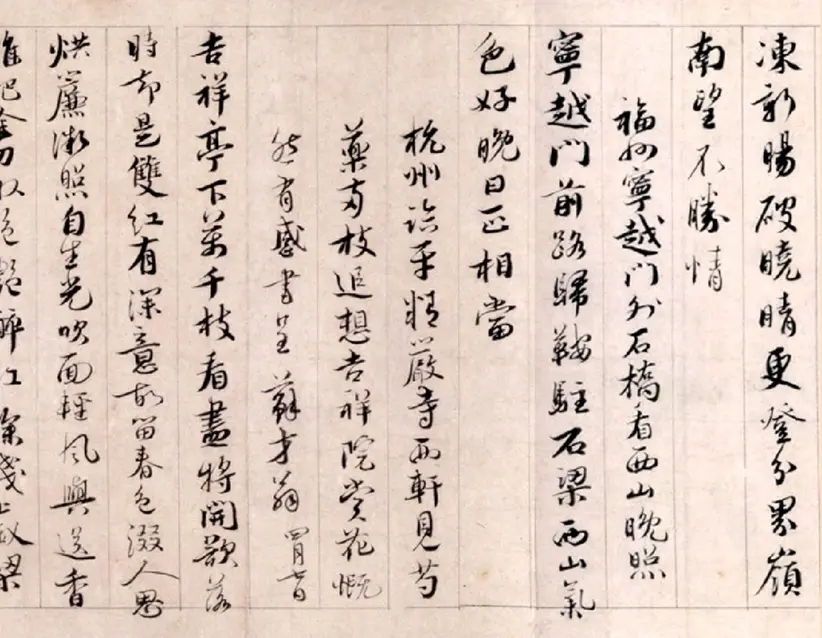 凍新陽破曉晴更登分界嶺
南望不勝情
福州寧越門外石橋看西山晚照
寧越門前路歸鞍駐石梁西山氣
色好晚日正相當
杭州臨平精嚴寺西軒見芍
藥兩枝追想吉祥院賞花慨
然有感書呈蘇才翁 四月七日
吉祥亭下萬千枝看盡將開欲落
時却是雙紅有深意故留春色綴人思
烘簾微照自生光吹面輕風與送香
誰把金刀收絕豔醉紅深淺上釵梁